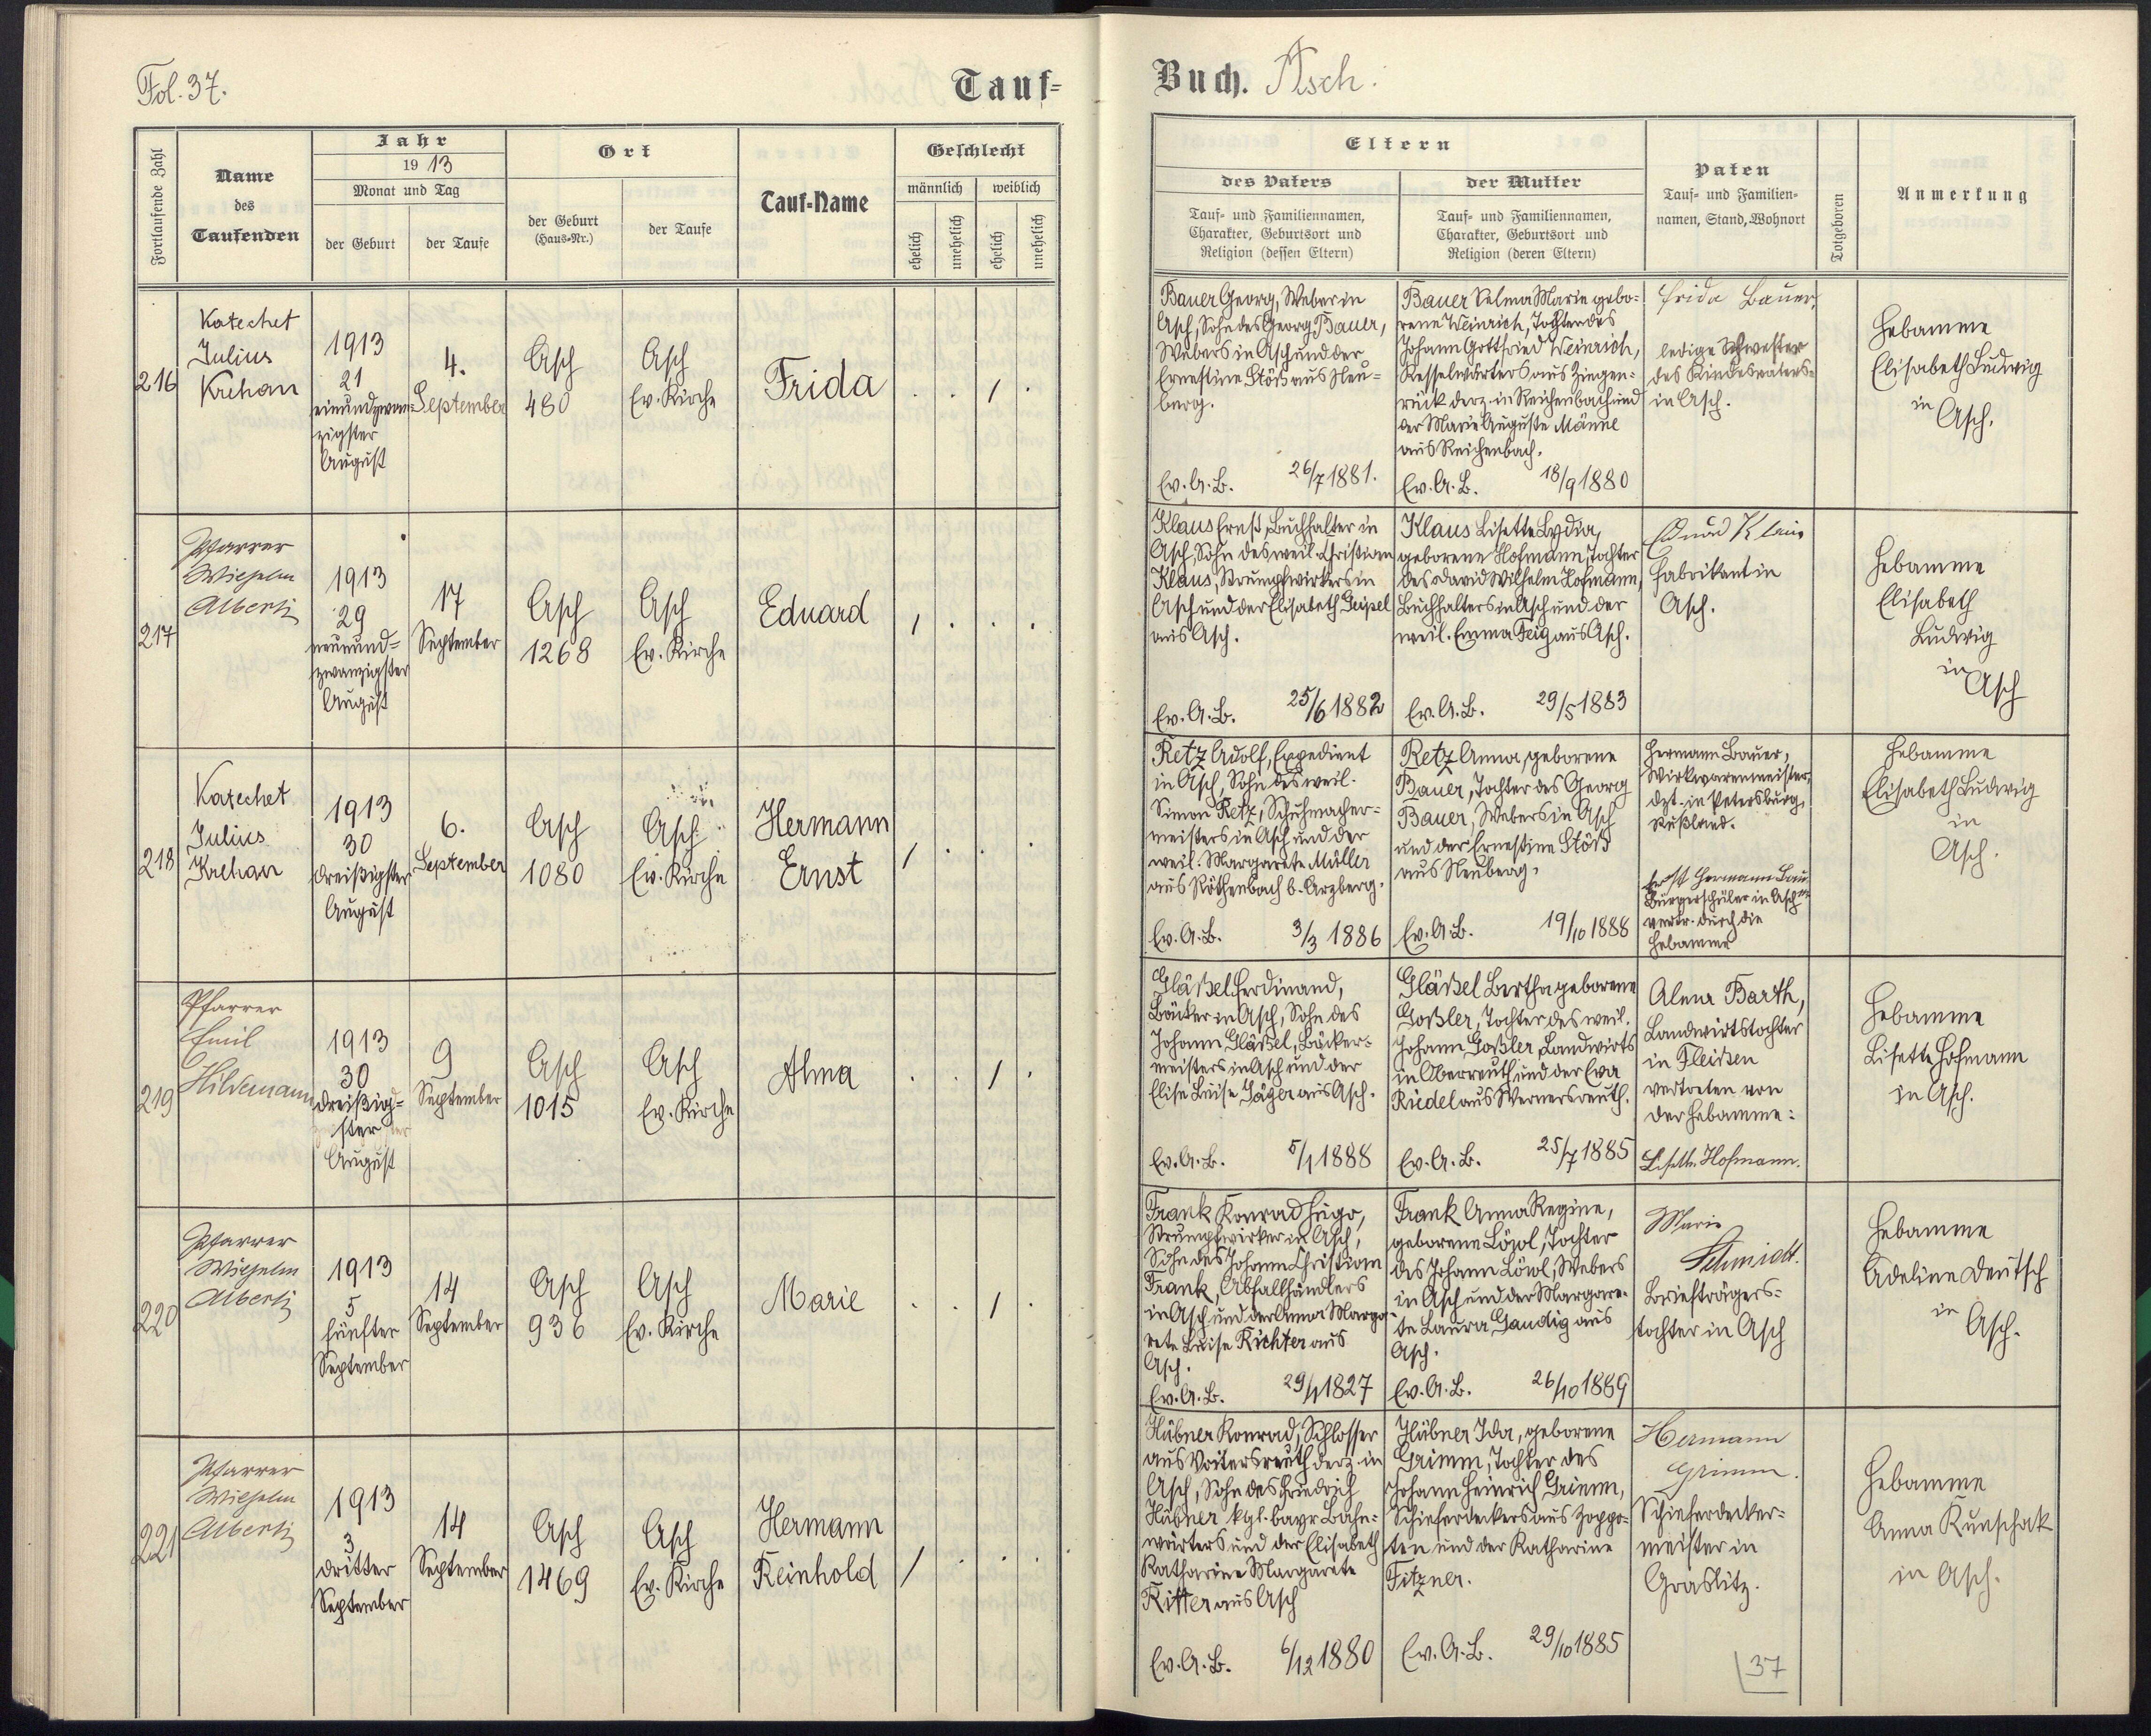 Fol. 37.
Tauf=
Buch. Asch.
Fortlaufende Zahl
Name
des
Taufenden
Jahr
1913
Monat und Tag
der Geburt
der Taufe
Ort
der Geburt
(Haus-Nr.)
der Taufe
Tauf-Name
Geschlecht
männlich
weiblich
ehelich
unehelich
ehelich
unehelich
Eltern
des Vaters
Tauf- und Familiennamen,
Charakter, Geburtsort und
Religion (dessen Eltern)
der Mutter
Tauf- und Familiennamen,
Charakter, Geburtsort und
Religion (deren Eltern)
Paten
Tauf- und Familien-
namen, Stand, Wohnort
Totgeboren
Anmerkung
216
Katechet
Julius
Krehan
1913
21
einundzwan
zigster
August
4.
September
Asch
480
Asch
Ev. Kirche
Frida
Bauer Georg, Weber in
Asch, Sohn des Georg Bauer,
Webers in Asch und der
Ernestine Stöß aus Neu=
berg.
Ev. A. B. 26/7 1881.
Bauer Selma Marie gebo=
rene Weinrich, Tochter des
Johann Gottfried Weinrich,
Kesselwärters aus Ziegen=
rück derz. in Reichenbach und
der Marie Auguste Männe
aus Reichenbach.
Ev. A. B. 18/9 1880
Frida Bauer,
ledige Schwester
des Kindesvaters
in Asch.
Hebamme
Elisabeth Ludwig
in
Asch.
217
Pfarrer
Wilhelm
Alberti
1913
29
neunund=
zwanzigster
August
17
September
Asch
1268
Asch
Ev. Kirche
Eduard
Klaus Ernst, Buchhalter in
Asch, Sohn des weil. Christian
Klaus, Strumpfwirkers in
Asch und der Elisabeth Geipel
aus Asch.
Ev. A. B. 25/6 1882
Klaus Lisette Lydia,
geborene Hofmann, Tochter
des David Wilhelm Hofmann,
Buchhalters in Asch und der
weil. Emma Feig aus Asch.
Ev. A. B. 29/5 1883
Eduard Klaus
Fabrikant in
Asch.
Hebamme
Elisabeth
Ludwig
in
Asch
218
Katechet
Julius
Krehan
1913
30
dreißigster
August
6.
September
Asch
1080
Asch
Ev. Kirche
Hermann
Ernst
Retz Adolf, Expedient
in Asch, Sohn des weil.
Simon Retz, Schuhmacher=
meisters in Asch und der
weil. Margarete Müller
aus Röthenbach b. Arzberg.
Ev. A. B. 3/3 1886
Retz Anna, geborene
Bauer, Tochter des Georg
Bauer, Webers in Asch
und der Ernestine Stöß
aus Neuberg.
Ev. A. B. 19/10 1888
Hermann Bauer,
Wirkwarenmeister,
dzt. in Petersburg,
Rußland.
Ernst Hermann Bau
Bürgerschüler in Asch
vertr. durch die
Hebamme
Hebamme
Elisabeth Ludwig
in
Asch.
219
Pfarrer
Emil
Hildemann
1913
30
dreißig=
ster
August
9
September
Asch
1015
Asch
Ev. Kirche
Alma
Gläßel Ferdinand,
Bäcker in Asch, Sohn des
Johann Gläßel, Bäcker=
meisters in Asch und der
Elise Luise Jäger aus Asch.
Ev. A. B. 5/1 1888
Gläßel Bertha geborene
Goßler, Tochter des weil.
Johann Goßler, Landwirts
in Oberreuth und der Eva
Riedel aus Wernersreuth.
Ev. A. B. 25/7 1885
Alma Barth,
Landwirtstochter
in Fleißen
vertreten von
der Hebamme:
Lisette Hofmann.
Hebamme
Lisette Hofmann
in Asch.
220
Pfarrer
Wilhelm
Alberti
1913
5
fünfter
September
14
September
Asch
936
Asch
Ev. Kirche
Marie
Frank Konrad Hugo,
Strumpfwirker in Asch,
Sohn des Johann Christian
Frank, Abfallhändlers
in Asch und der Anna Marga=
rete Luise Richter aus
Asch.
Ev. A. B. 29/1 1827
Frank Anna Regine,
geborene Löwl, Tochter
des Johann Löwl, Webers
in Asch und der Margare=
te Laura Gaudig aus
Asch.
Ev. A. B. 26/10 1889
Marie
Schmidt.
Briefträgers=
tochter in Asch
Hebamme
Adeline Deutsch
in
Asch.
221
Pfarrer
Wilhelm
Alberti
1913
3
dritter
September
14
September
Asch
1469
Asch
Ev. Kirche
Hermann
Reinhold
Hübner Konrad, Schlosser
aus Voitersreuth derz. in
Asch, Sohn des Friedrich
Hübner kgl. bayr. Bahn=
wärters und der Elisabeth
Katharine Margarete
Ritter aus Asch
Ev. A. B. 6/12 1880
Hübner Ida, geborene
Grimm, Tochter des
Johann Heinrich Grimm,
Schieferdeckers aus Zoppo=
ten und der Katharine
Fitzner.
Ev. A. B. 29/10 1885
Hermann
Grimm.
Schieferdecker=
meister in
Graslitz.
Hebamme
Anna Kunschak
in Asch.
37